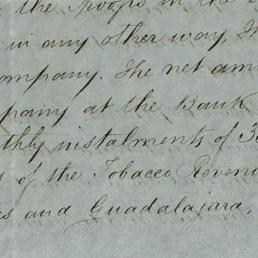 the Troops in the
in any other way, Th
ompany. The net am
pany at the Bank
thly instalments of 3
s of the Tobacco Reven
es and Guadalajara,